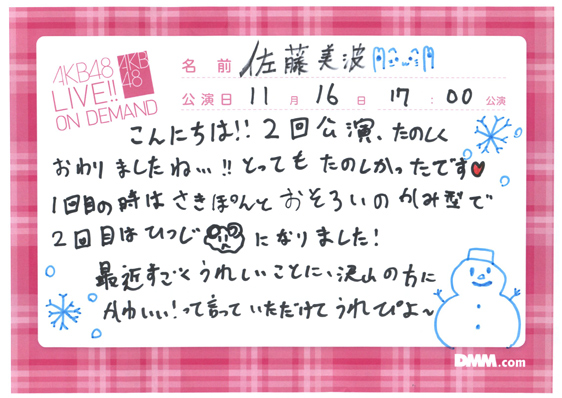 AKB48
LIVE!!
ON DEMAND
AKB
48
名前 佐藤美波
公演日 11月16日 17:00公演
こんにちは!!2回公演、たのしく
おわりましたね...!!とってもたのしかったです♥
1回目の時はさきぽんとおそろいのかみ型で
2回目はひつじになりました!
最近すごくうれしいことに、沢山の方に
かわいい!って言っていただけてうれぴよ〜
DMM.com